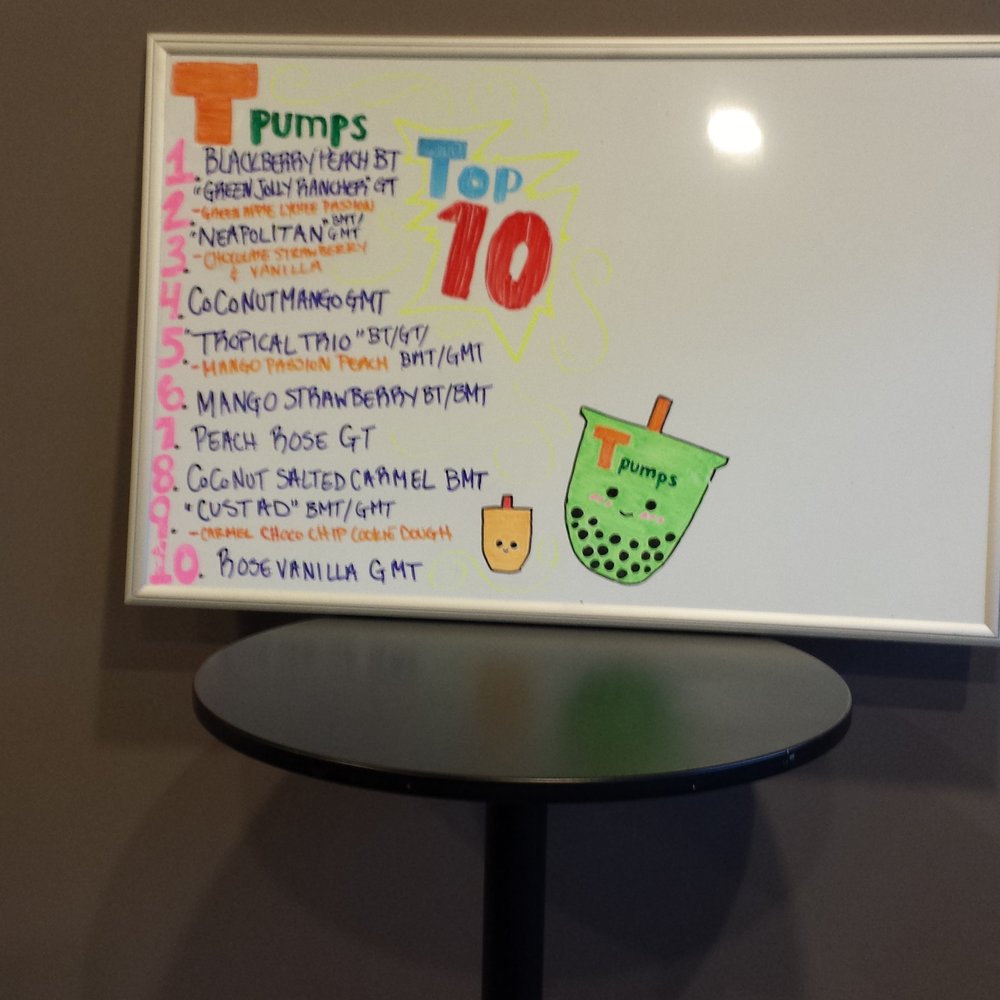 T PUMPS
TOP
10
1. BLACKBERRY PEACH BT
2. "GREEN JOLLY RANCHER" GT
-GREEN APPLE LYCHEE PASSION
3. "NEAPOLITAN" BMT/GMT
-CHOCOLATE STRAWBERRY
& VANILLA
4. COCONUT MANGO GMT
5. "TROPICAL TRIO" BT/GT/
-MANGO PASSION PEACH BMT/GMT
6. MANGO STRAWBERRY BT/BMT
7. PEACH ROSE GT
8. COCONUT SALTED CARMEL BMT
9. "CUSTAD" BMT/GMT
-CARMEL CHOCO CHIP COOKIE DOUGH
10. ROSE VANILLA GMT
T pumps